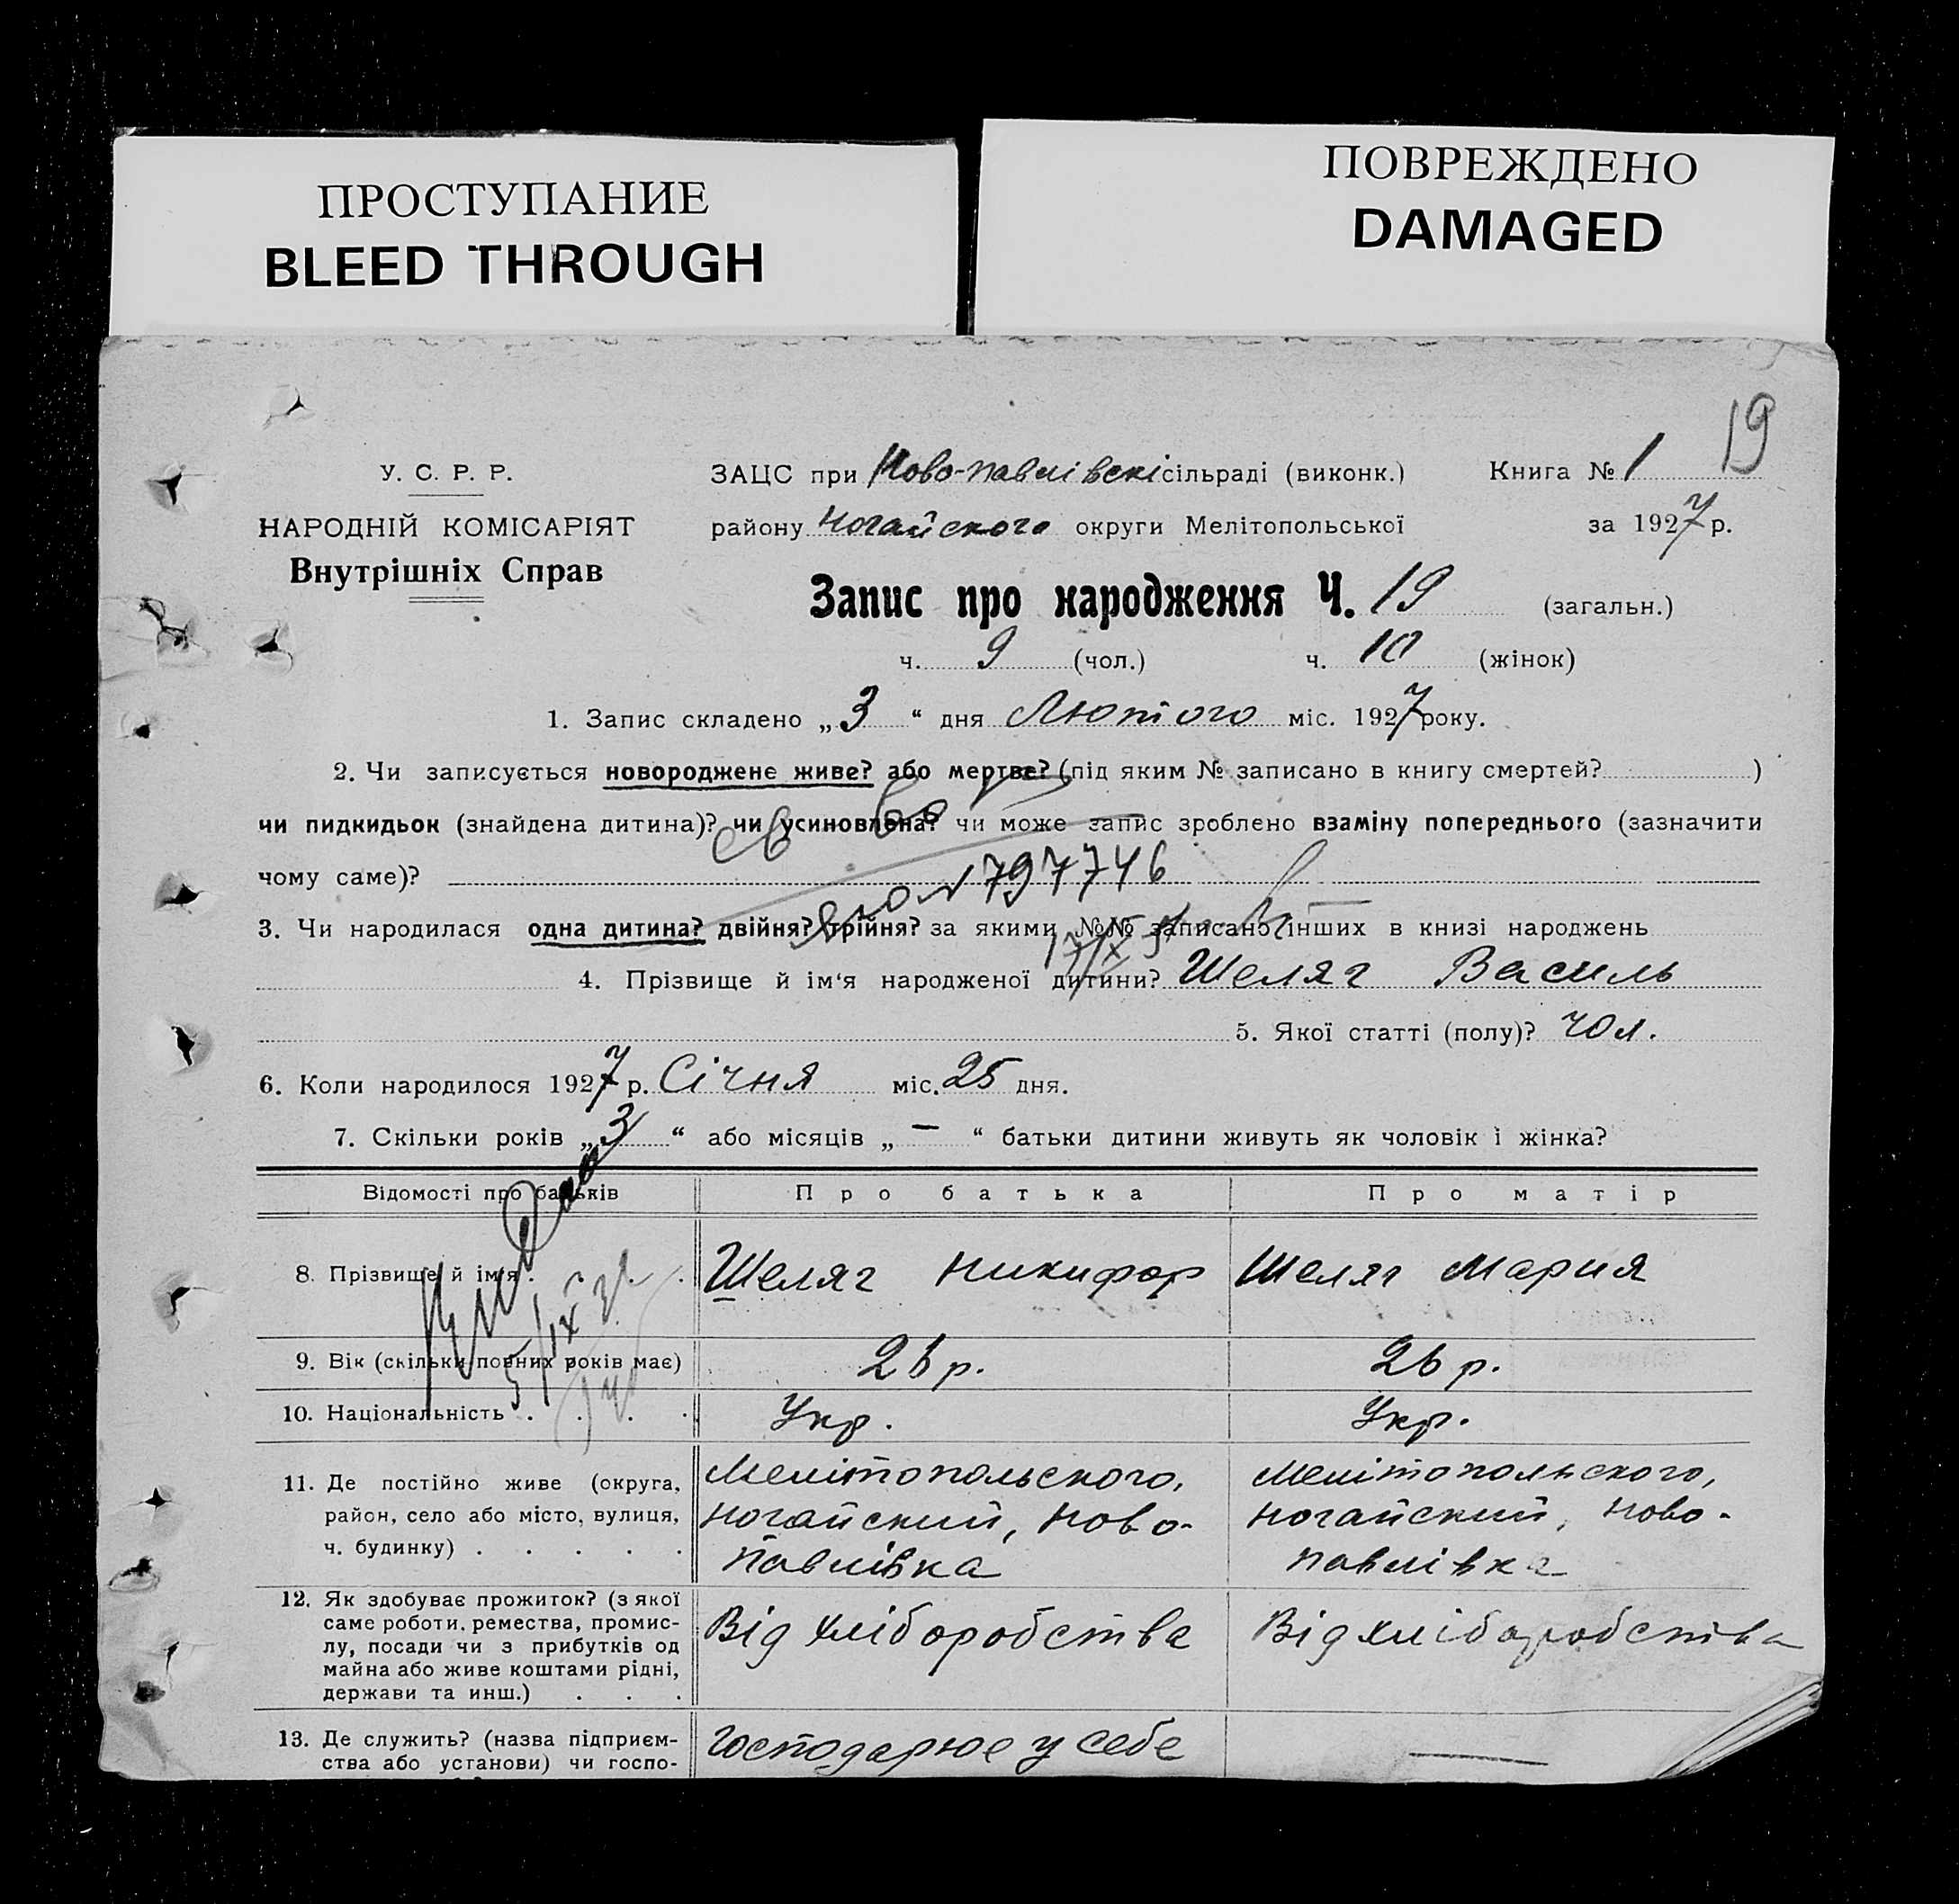 ПРОСТУПАНИЕ
BLEED THROUGH
ПОВРЕЖДЕНО
DAMAGED
19
У. С. Р. Р.
НАРОДНІЙ КОМІСАРІЯТ
Внутрішніх Справ
ЗАЦС при Ново-павлівскі сільраді (виконк.) Книга № 1
району Ногайского округи Мелітопольської за 1927 р.
Запис про народження Ч. 19 (загальн.)
ч. 9 (чол.) ч. 10 (жінок)
1. Запис складено „3“ дня Лютого міс. 1927 року.
2. Чи записується новороджене живе? або мертве? (під яким № записано в книгу смертей? )
чи пидкидьок (знайдена дитина)? чи усиновлена? чи може запис зроблено взаміну попереднього (зазначити
чому саме)?
797746
3. Чи народилася одна дитина? двійня? трійня? за якими №№ записано інших в книзі народжень
4. Прізвище й ім‘я народженої дитини? Шеляг Василь
5. Якої статті (полу)? чол.
6. Коли народилося 1927 р. Січня міс. 25 дня.
7. Скільки років „3“ або місяців „—“ батьки дитини живуть як чоловік і жінка?
Відомості про батьків Про батька Про матір
8. Прізвище й ім‘я . . Шеляг Никифор Шеляг Мария
9. Вік (скільки повних років має) 26 р. 26 р.
10. Національність . . . . Укр. Укр.
11. Де постійно живе (округа, Мелітопольского, Мелітопольского,
район, село або місто, вулиця, Ногайский, Ново- Ногайский, Ново-
ч. будинку) . . . . . павлівка павлівка
12. Як здобуває прожиток? (з якої
саме роботи, ремества, промис-
лу, посади чи з прибутків од
майна або живе коштами рідні,
держави та инш.) . . .
Від хліборобства Від хліборобства
13. Де служить? (назва підприєм-
ства або установи) чи госпо-
Господарює у себе —